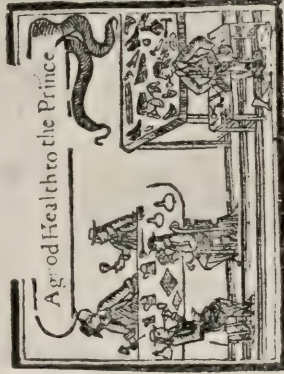 A good Health to the Prince